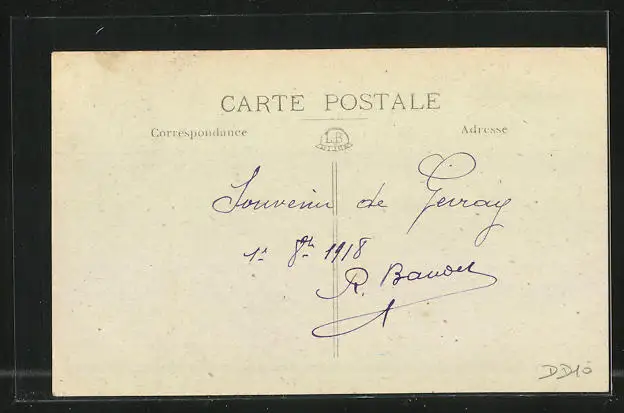 CARTE POSTALE
Correspondance
L.B
Adresse
Souvenir de Gevray
1er 8bre 1918
R. Baudet
DD10